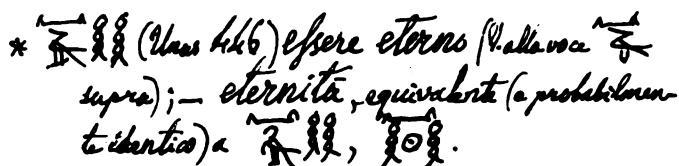 * (Unas 446) essere eterno (V. alla voce
supra); — eternità, equivalente (e probabilmen-
te identico) a , .